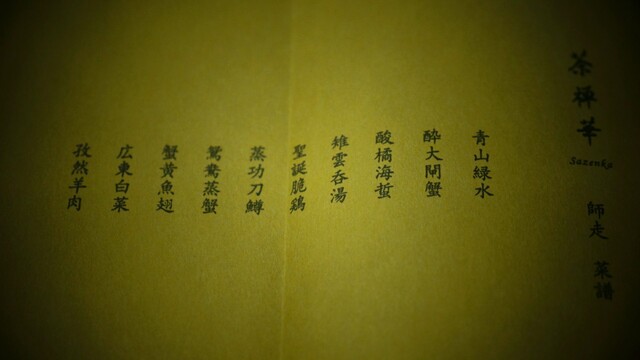 茶禅華
Sazenka
師走 菜譜
青山緑水
酔大閘蟹
酸橘海蜇
雉雲呑湯
聖誕脆鶏
蒸功刀鱒
鴛鴦蒸蟹
蟹黄魚翅
広東白菜
孜然羊肉